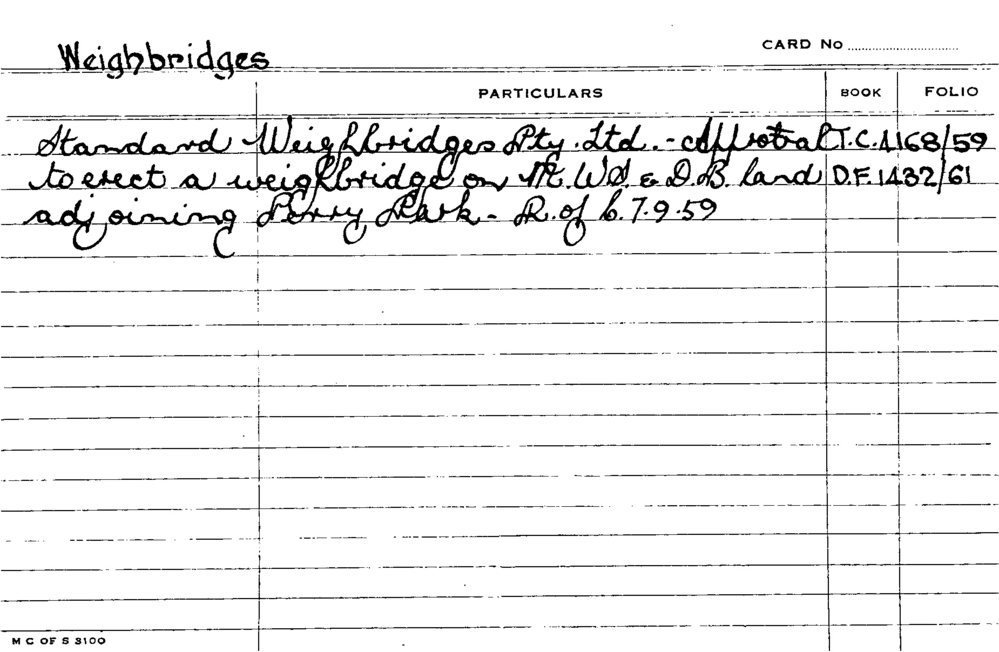 Weighbridges
CARD No
PARTICULARS BOOK FOLIO
Standard Weighbridges Pty. Ltd. - approval T.C. 4168/59
to erect a weighbridge on M.W.S. & D.B. land D.F. 1432/61
adjoining Perry Park - R. of C. 7.9.59
M C OF S 3100